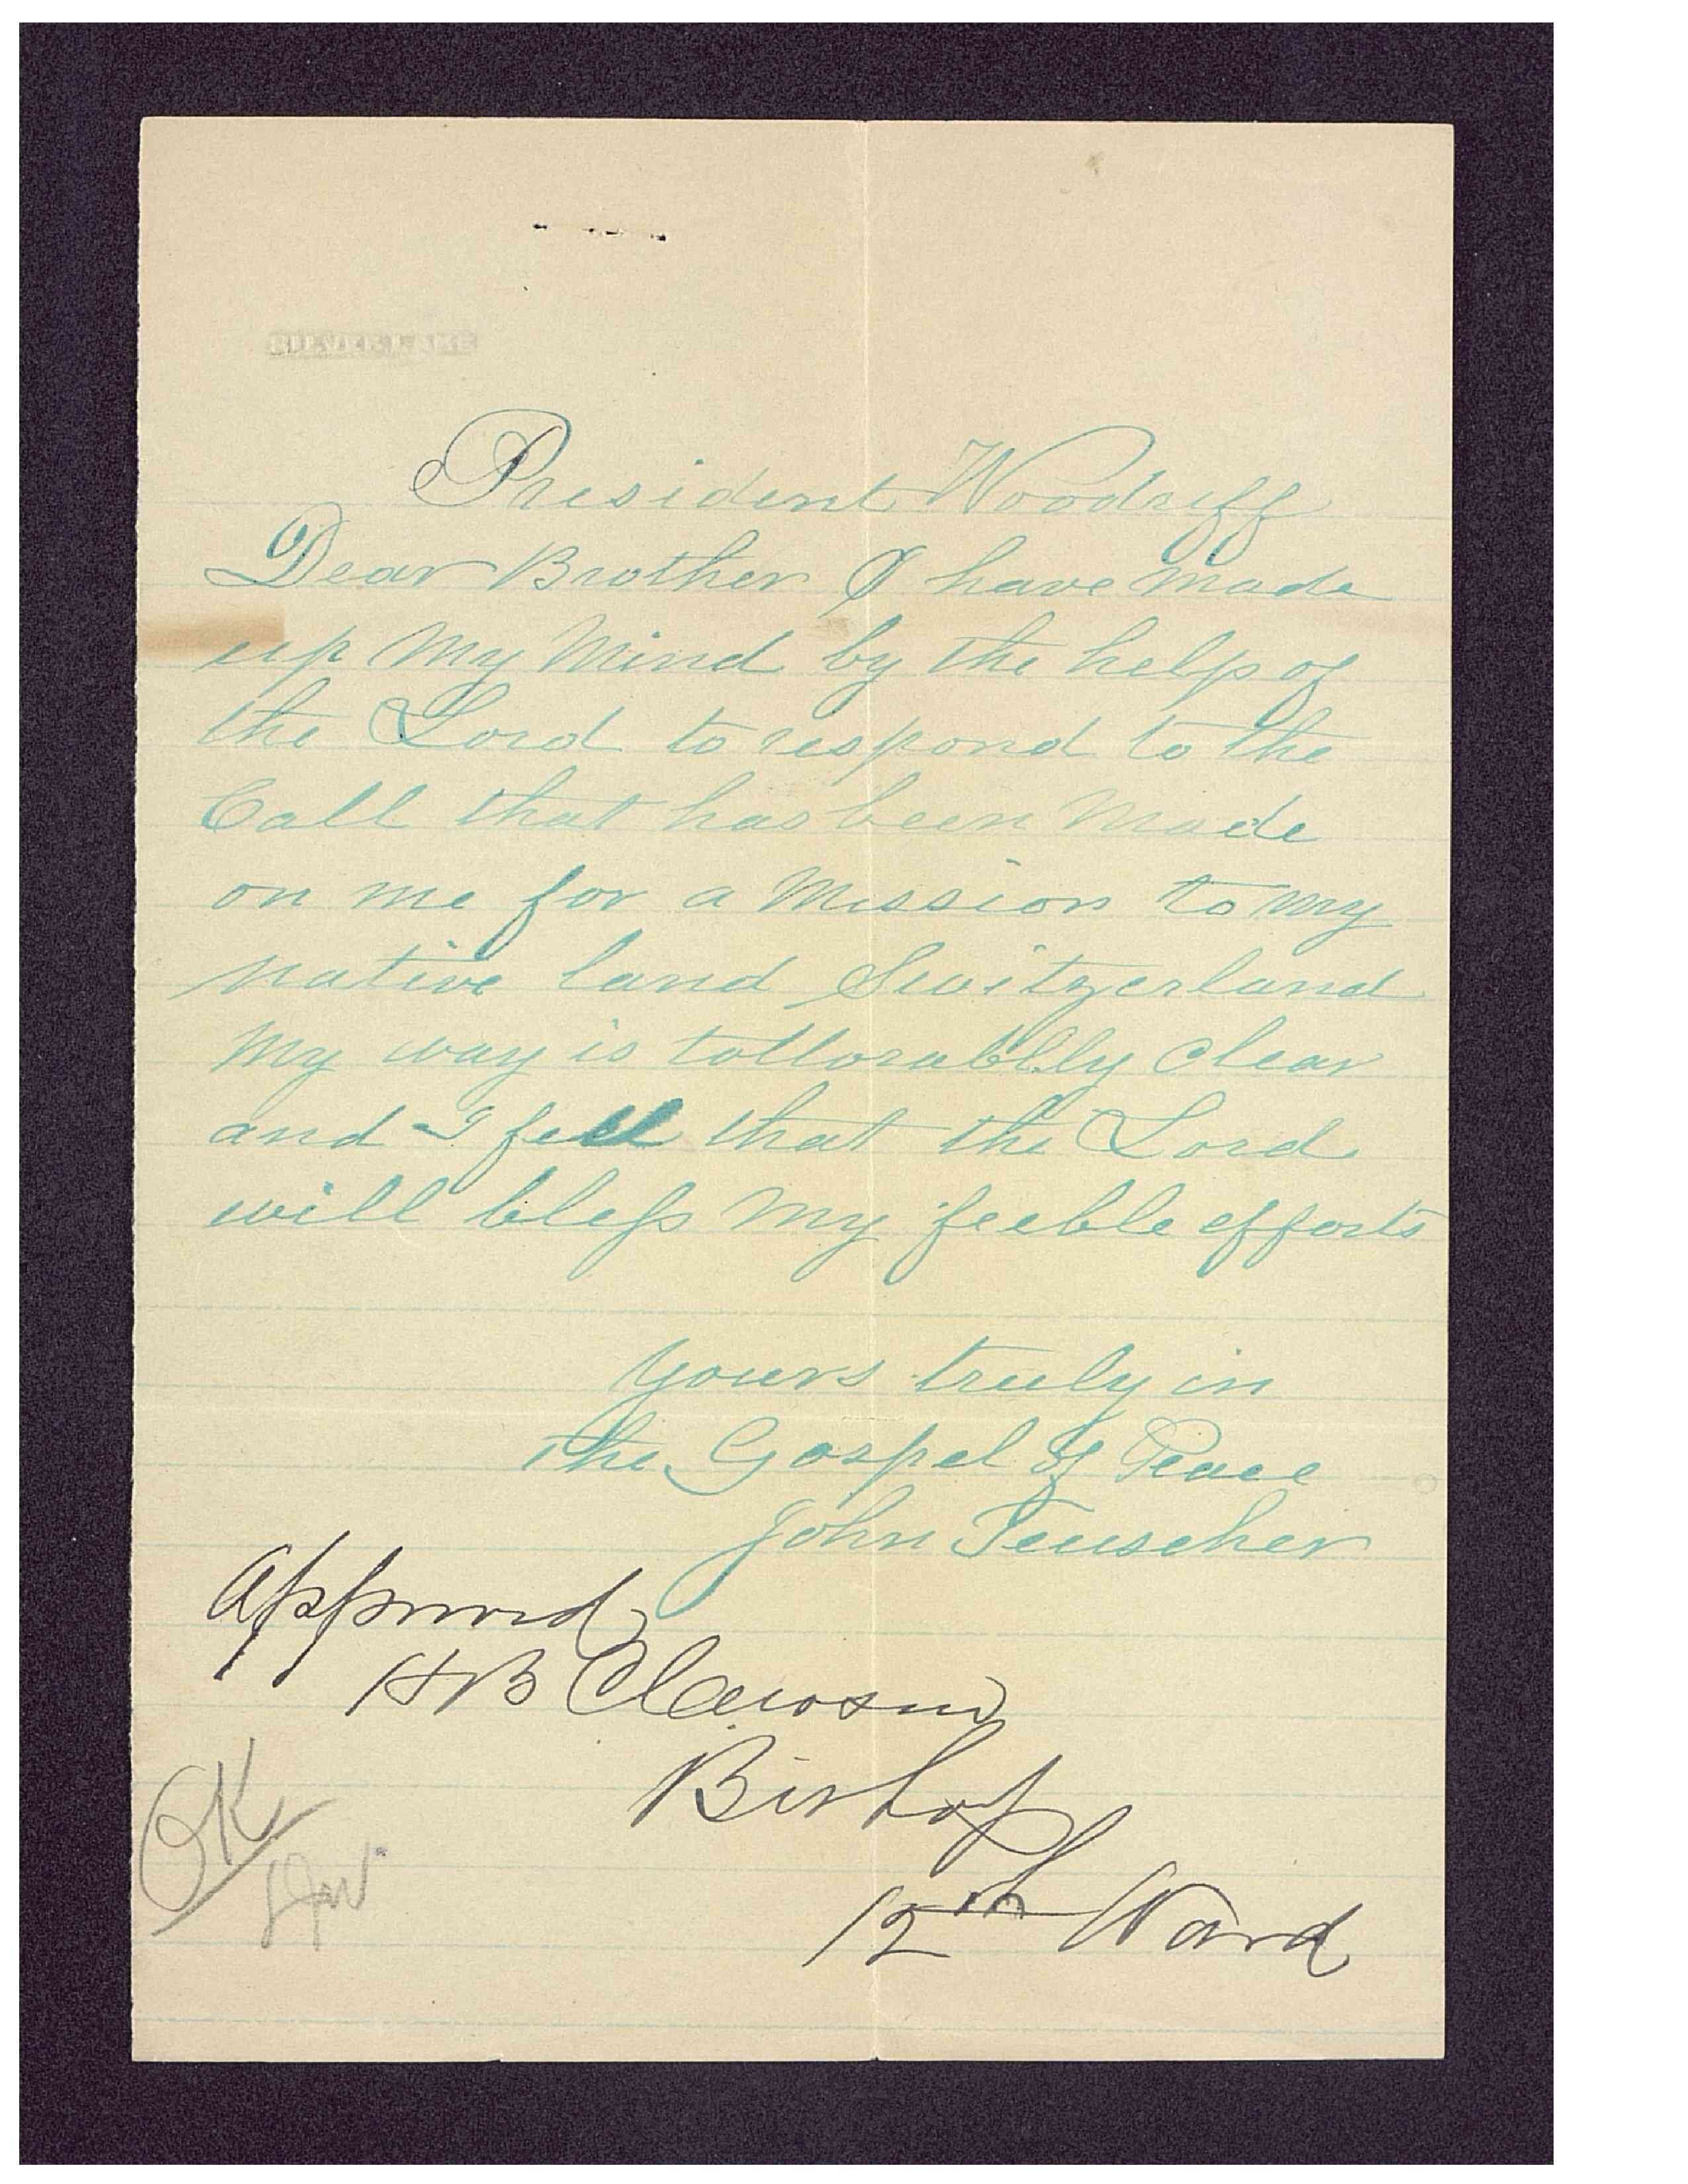 SILVER LAKE
President Woodruff
Dear Brother I have made
up my Mind by the help of
the Lord to respond to the
Call that has been Made
on me for a Mission to my
native land Switzerland
My way is tollorablly clear
and I feel that the Lord
will bless my feeble efforts
yours truly in
the Gospel of Peace
John Teuscher
Approved
H B Clawson
Bishop
12th Ward
OK